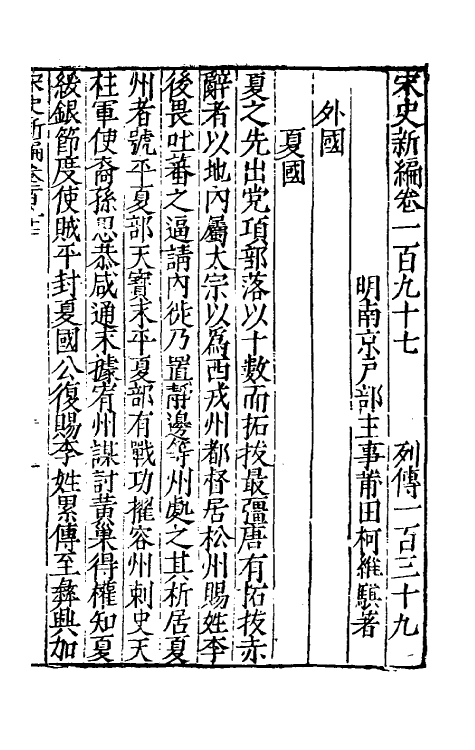 宋史新編卷一百九十七　列傳一百三十九
明南京戶部主事莆田柯維騏著
外國
夏國
夏之先出党項部落以十數而拓拔最彊唐有拓拔赤
辭者以地內屬太宗以爲西戎州都督居松州賜姓李
後畏吐蕃之逼請內徙乃置靜邊等州處之其析居夏
州者號平夏部天寶末平夏部有戰功擢容州刺史天
柱軍使裔孫思恭咸通末據宥州謀討黃巢得權知夏
綏銀節度使賊平封夏國公復賜李姓累傳至彝興加
宋史新編卷